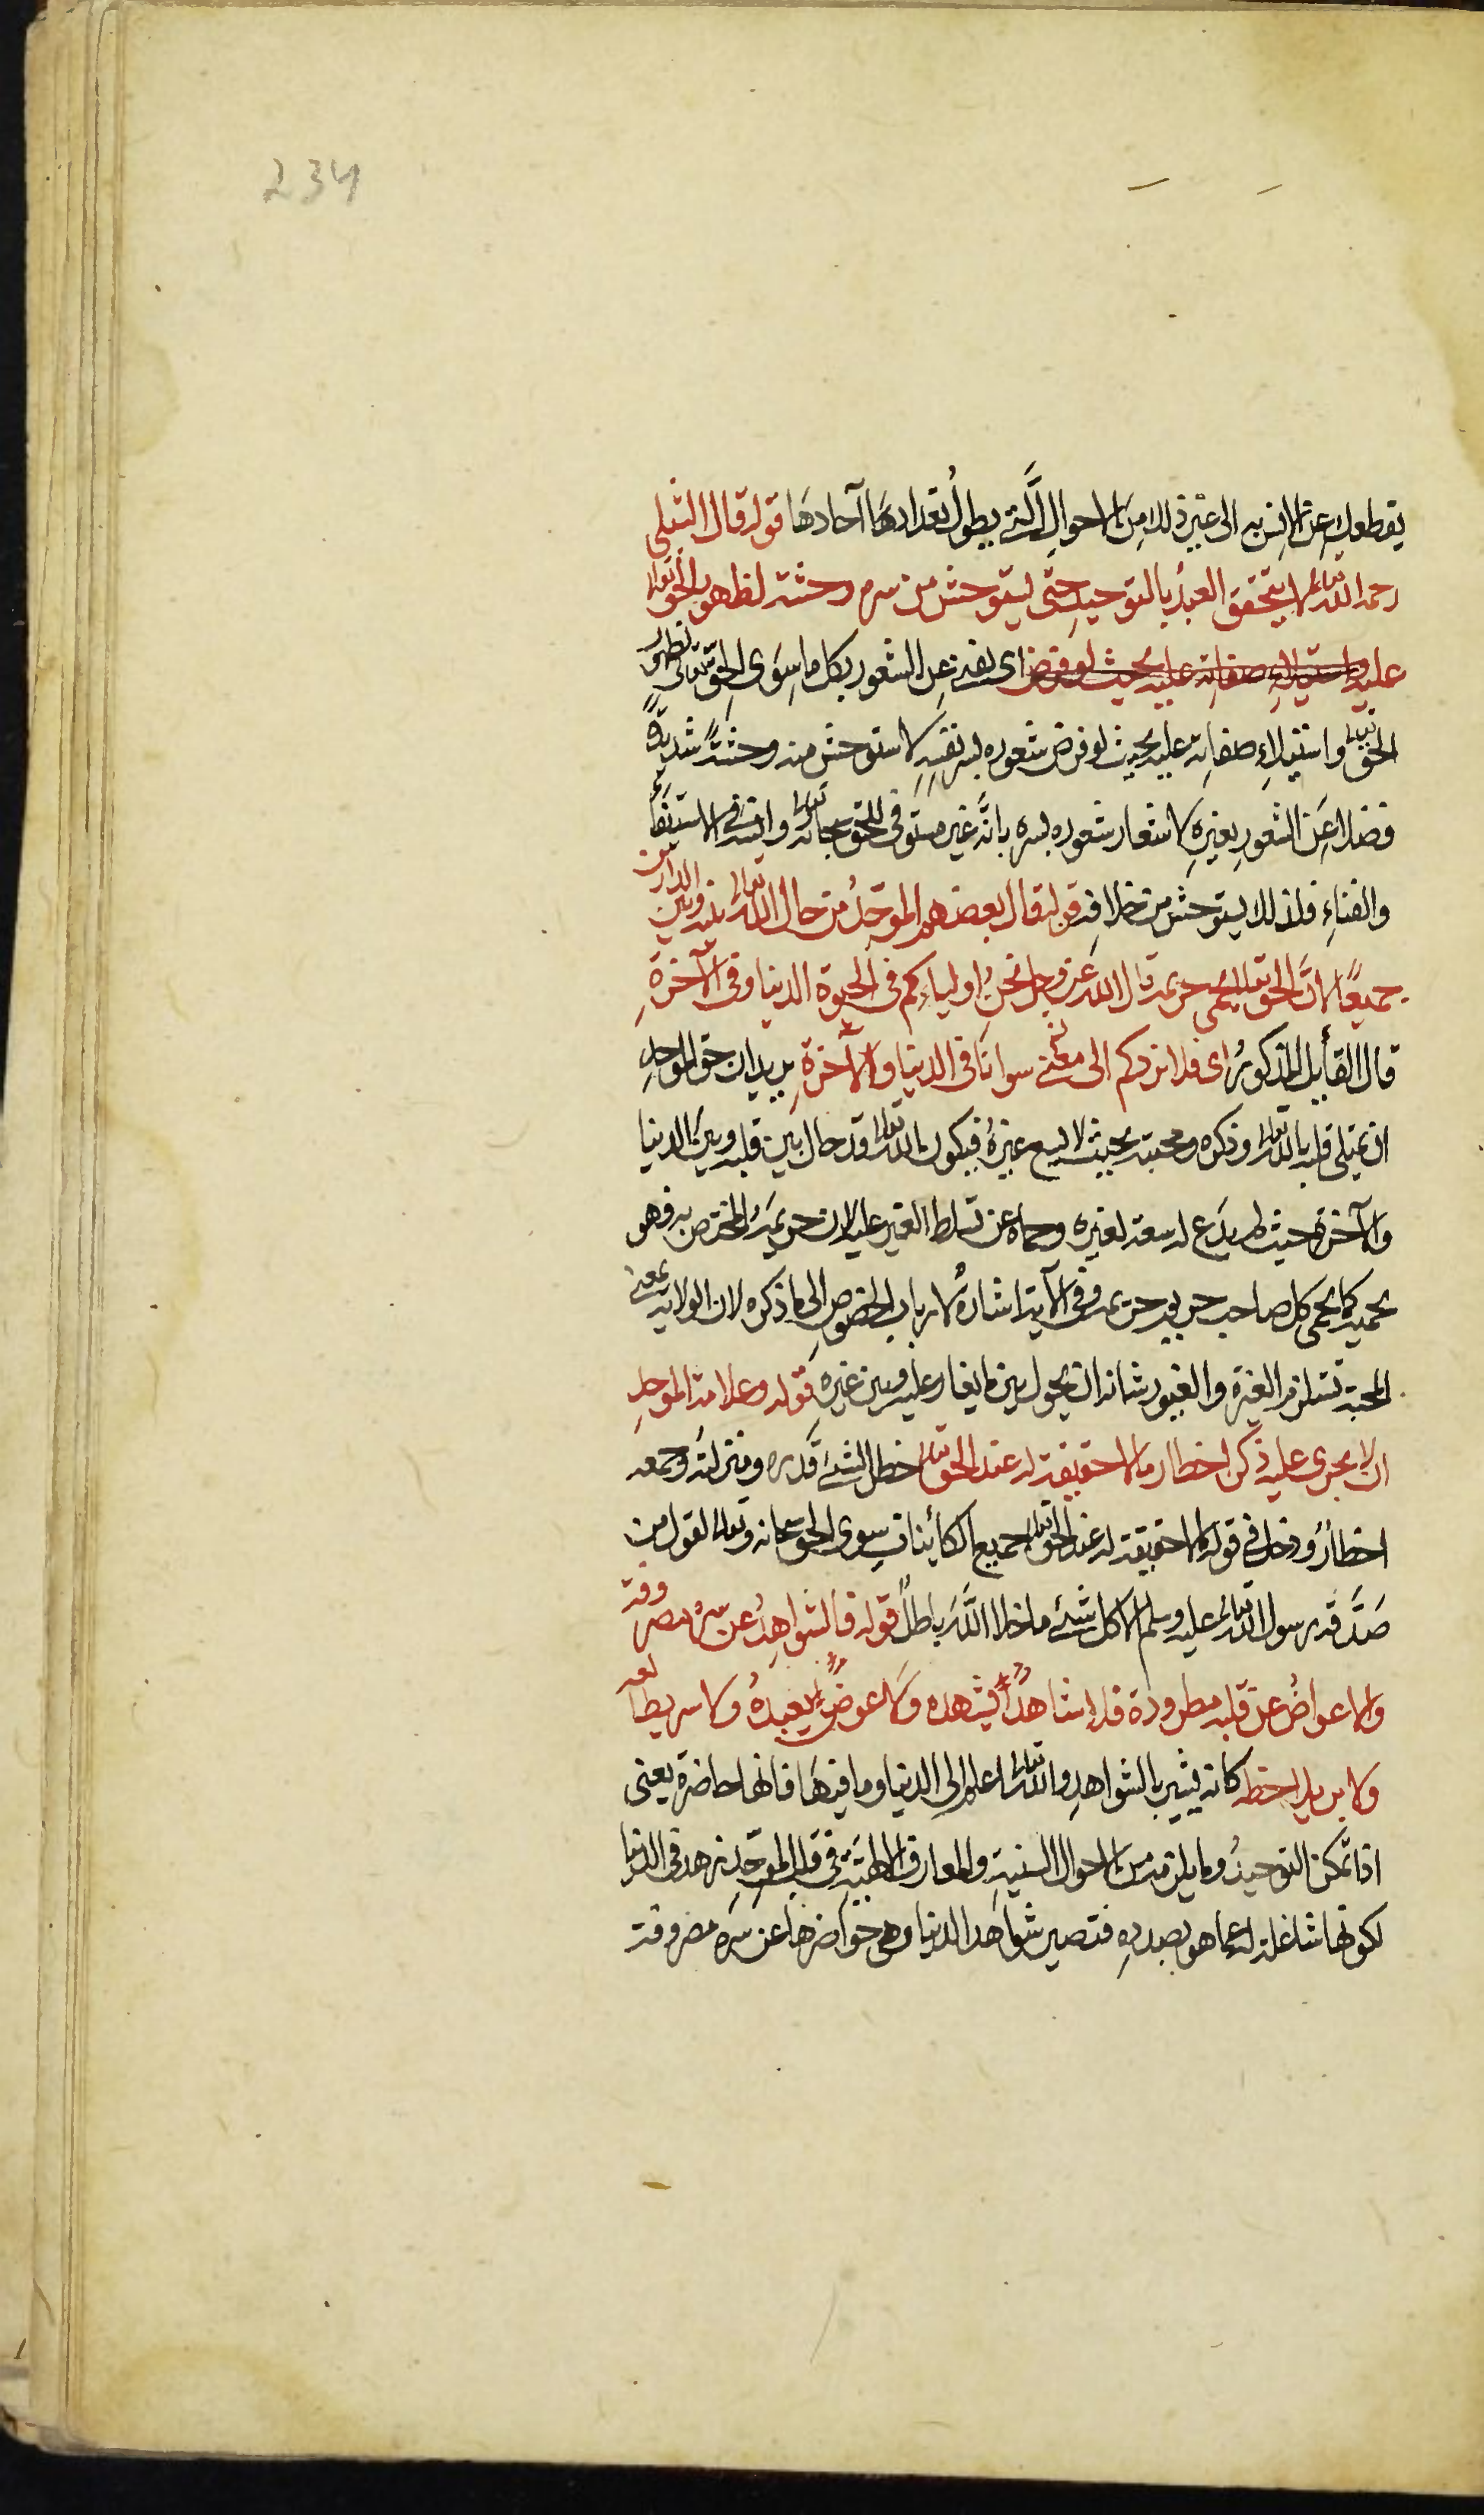 234
يقطعك عن الانس به الى غير ذلك من الاحوال التے يطول تعدادها آحادها قوله قال الشبلى
رحمه الله تعالى لا يتحقق العبد بالتوحيد حتى يستوحش من سره وحشة لظهور الحق تعالى
عليه واستيلاء صفاته عليه بحيث لو فرض اى يفنى عن الشعور بكل ما سوى الحق تعالى لظهور
الحق تعالى واستيلاء صفاته عليه بحيث لو فرض شعوره بسر نفسه لاستوحش منه وحشة شديدة
فضلا عن الشعور بغيره لاشعار شعوره بسره بانه غير مستوفى للحق سبحانه وتعالى فى الاستيفاء
والفناء فلذلك يستوحش من خلافه قوله قال بعضهم الموحد من حال الله تعالى بينه وبين الدارين
جميعًا لان الحق تعالى يحمى حريمه قال الله عز وجل نحن اولياءكم فى الحيوة الدنيا وفى الآخرة
قال القايل المذكور اى فلا نردكم الى معنى سوانا فى الدنيا والآخرة يريد ان حق الموحد
ان يمتلى قلبه بالله تعالى وذكره ومحبته بحيث لا يسع غيره فيكون الله تعالى قد حال بين قلبه وبين الدنيا
والآخرة حيث لم يدع له سعة لغيره وحماه عن تسلط الغير عليه لان حريمه المختص به فهو
يحميه كما يحمى كل صاحب حريم حريمه وفى الآية اشارة لارباب الخصوص الى ما ذكره لان الولاية بمعنى
المحبة تستلزم الغيرة والغيور شانه ان يحول بين ما يغار عليه وبين غيره قوله وعلامة الموحد
ان لا يجرى عليه ذكر اخطار ما لا حقيقة له عند الحق تعالى خطر الشئ قدره ومنزلته وجمعه
اخطار ودخل فى قوله ما لا حقيقة له عند الحق تعالى جميع الكائنات سوى الحق سبحانه وتعالى لقول من
صدقه رسول الله تعالى عليه وسلم الا كل شئ ما خلا الله باطل قوله فالشواهد عن سره مصروفة
والاعواض عن قلبه مطرودة فلا شاهدًا يشهده ولا عوض يعبده ولا سر يطالعه
ولا بر يلاحظه كانه يشير بالشواهد والله تعالى اعلم الى الدنيا وما فيها فانها حاضرة يعنى
اذا تمكن التوحيد وما يلزمه من الاحوال السنية والمعارف الالهية فى قلب الموحد زهد فى الدنيا
لكونها شاغلة له عما هو بصدده فتصير شواهد الدنيا وهى حواضرها عن سره مصروفة